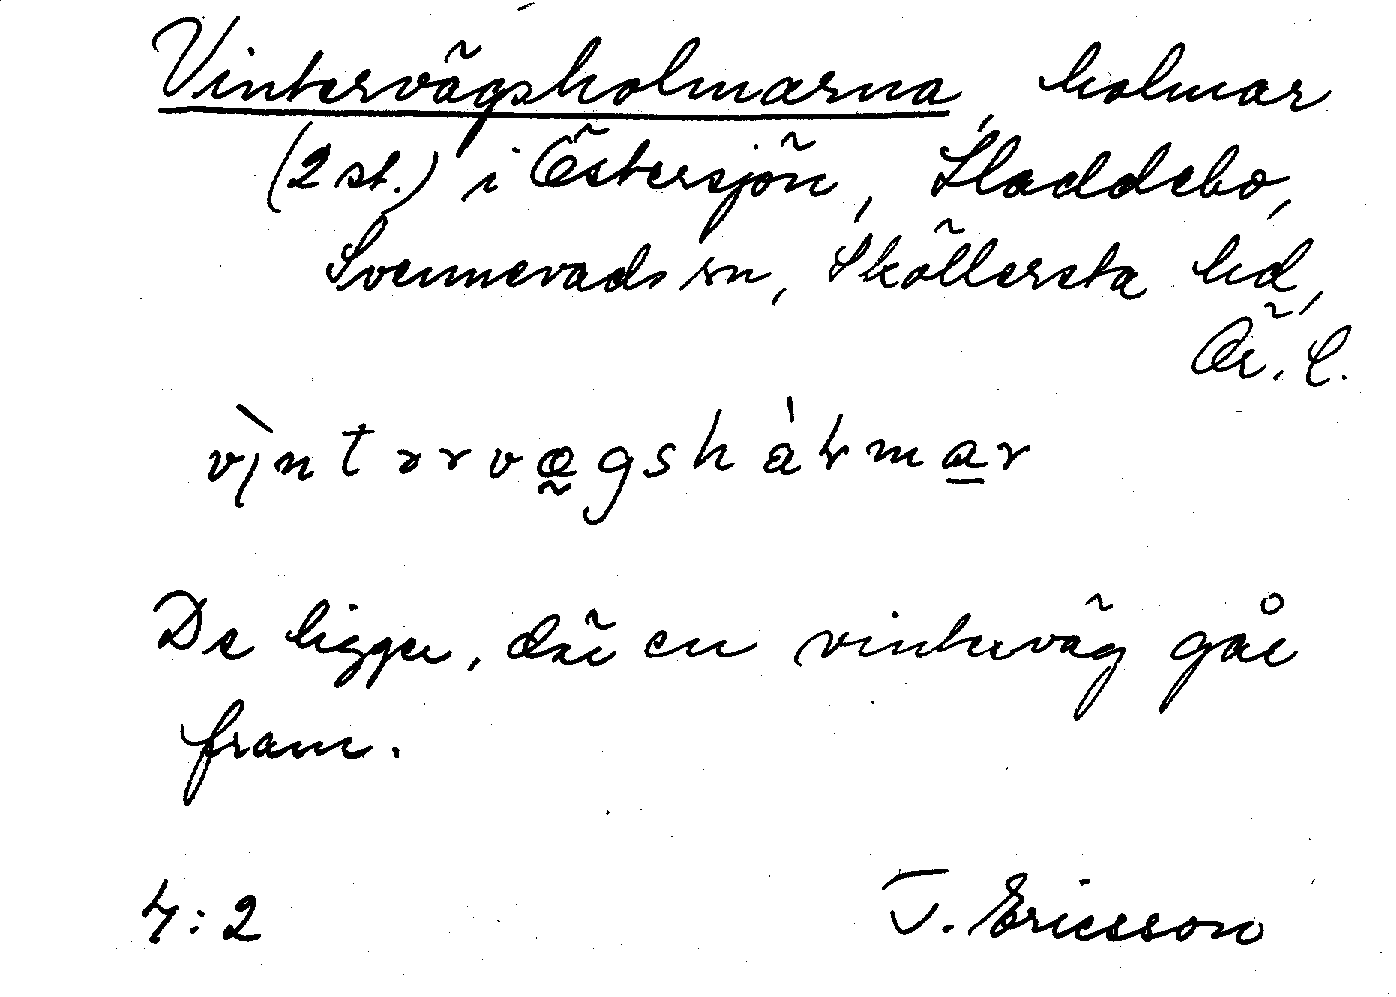 Vintervägsholmarna, holmar
(2 st.) i Östersjön, Sladdebo,
Svennevads sn, Sköllersta hd,
Ör. l.
vìntərvægshàlmar
De ligger, där en vinterväg går
fram.
4:2 T. Ericsson